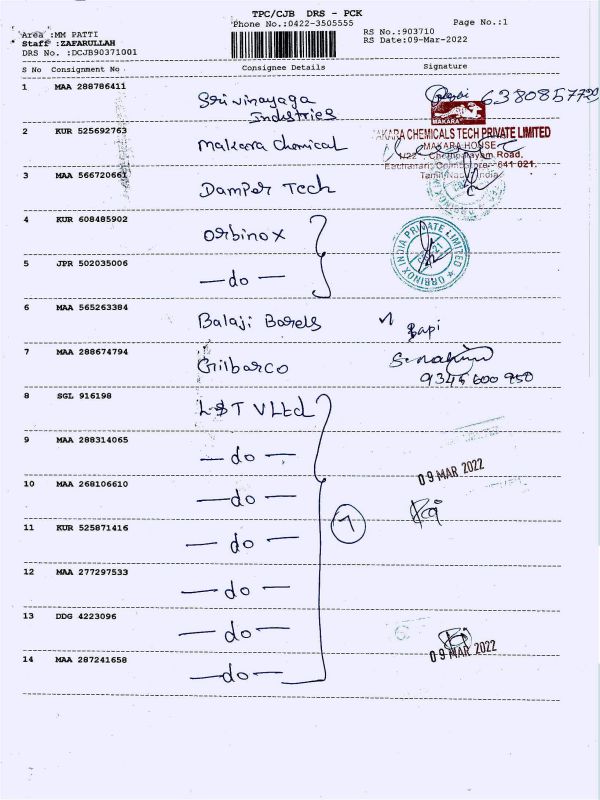 TPC/CJB DRS - PCK
Phone No.:0422-3505555
Page No.:1
Area :MM PATTI
RS No.:903710
Staff :ZAFARULLAH
RS Date:09-Mar-2022
DRS No. :DCJB90371001
S No Consignment No Consignee Details Signature
1 MAA 288786411 Sri vinayaga
Industries
6380857729
MAKARA
2 KUR 525692763 Makara Chemical
MAKARA CHEMICALS TECH PRIVATE LIMITED
MAKARA HOUSE
Road,
641 021.
Tamil Nadu, India
3 MAA 566720661 Damper Tech
4 KUR 608485902 Orbinox
ORBINOX INDIA PRIVATE LIMITED
5 JPR 502035006 — do —
6 MAA 565263384 Balaji Barels
Bapi
7 MAA 288674794 Gilbarco
9345600950
8 SGL 916198 L&T VLtd
9 MAA 288314065 — do —
09 MAR 2022
10 MAA 268106610 — do —
11 KUR 525871416 — do —
7
12 MAA 277297533 — do —
13 DDG 4223096 — do —
09 MAR 2022
14 MAA 287241658 — do —